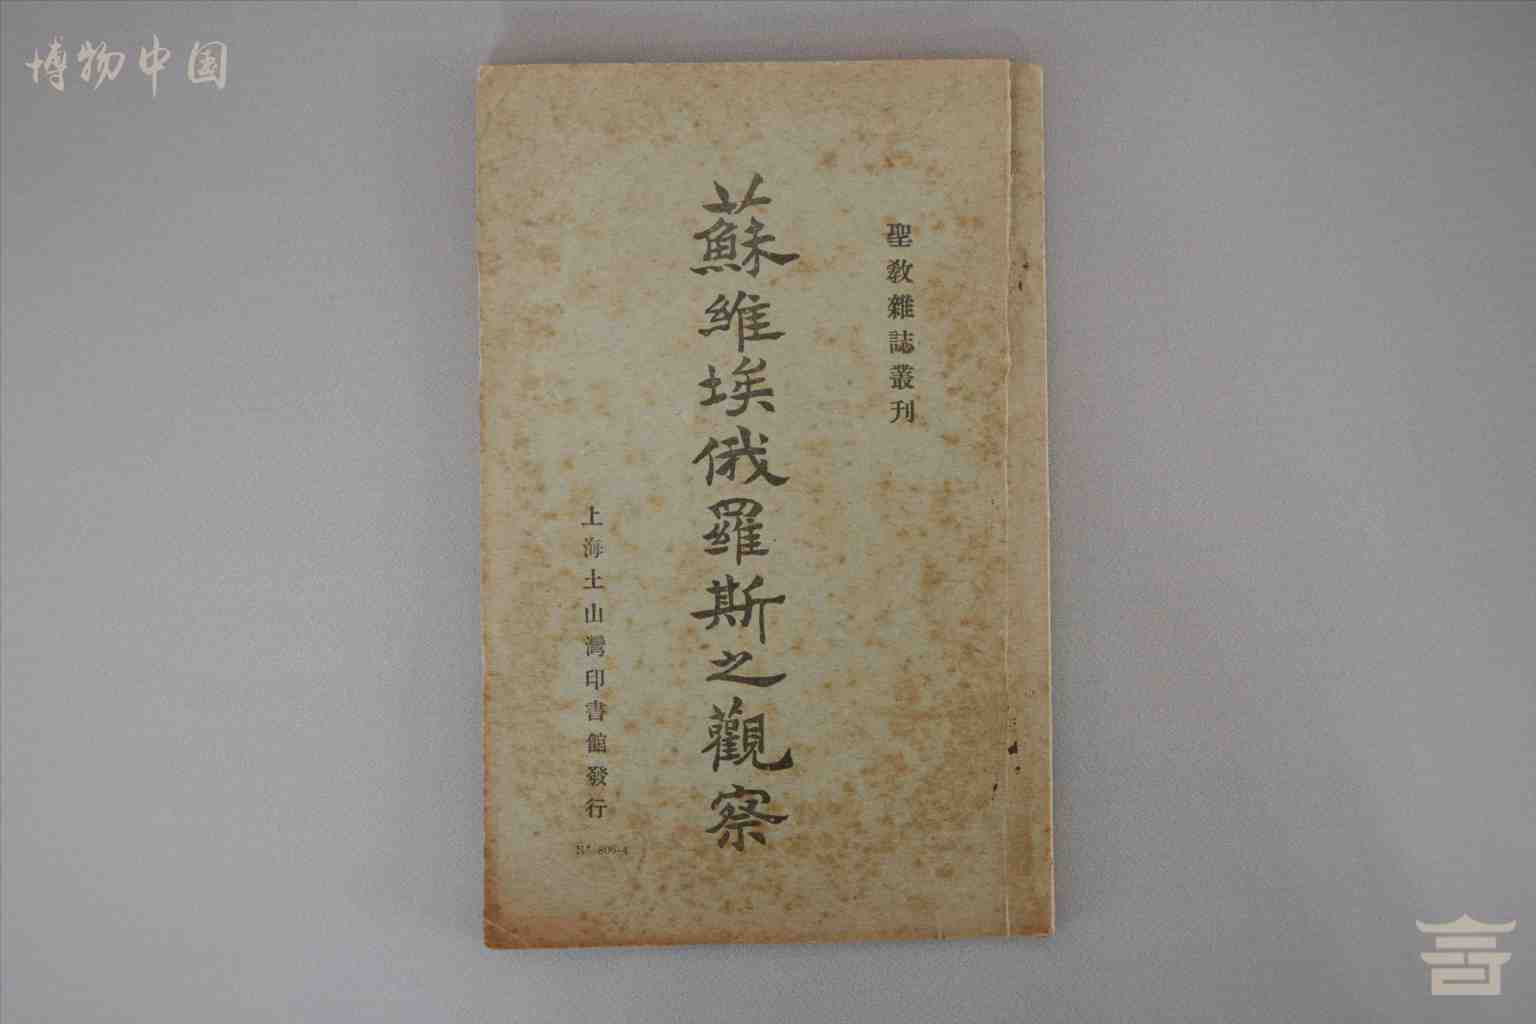 博物中国
聖教雜誌叢刊
蘇維埃俄羅斯之觀察
上海土山灣印書館發行
Nº 806-4